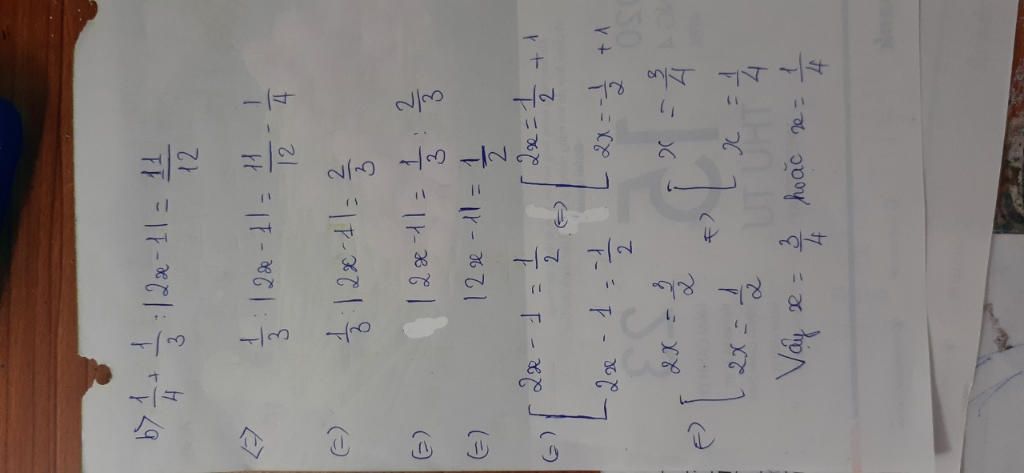 b) 1/4 + 1/3 : |2x - 1| = 11/12
<=> 1/3 : |2x - 1| = 11/12 - 1/4
(=) 1/3 : |2x - 1| = 2/3
(=) |2x - 1| = 1/3 : 2/3
(=) |2x - 1| = 1/2
(=) [ 2x - 1 = 1/2 (=) [ 2x = 1/2 + 1
2x - 1 = -1/2 2x = -1/2 + 1
(=) [ 2x = 3/2 (=) [ x = 3/4
2x = 1/2 x = 1/4
Vậy x = 3/4 hoặc x = 1/4